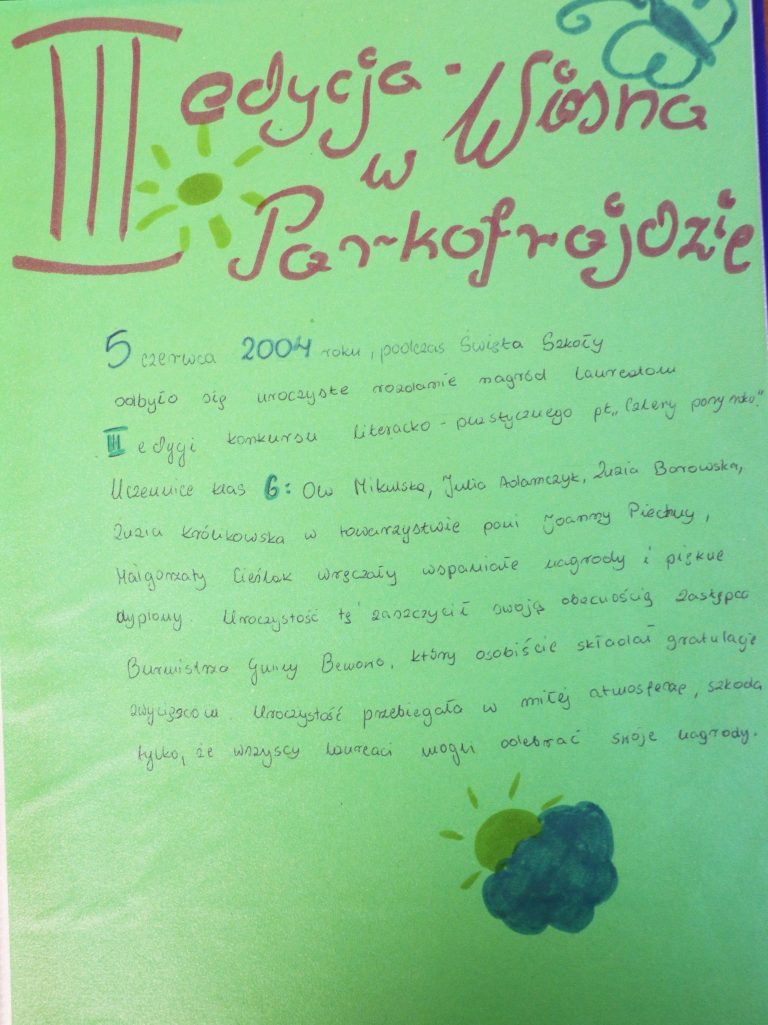 III edycja - Wiosna
w
Parkofrajdzie
5 czerwca 2004 roku, podczas Święta Szkoły
odbyło się uroczyste rozdanie nagród laureatom
III edycji konkursu literacko-plastycznego pt „Cztery pory roku".
Uczennice klas 6: Ola Mikulska, Julia Adamczyk, Zuzia Borowska,
Zuzia Królikowska w towarzystwie pani Joanny Piechny,
Małgorzaty Cieślak wręczały wspaniałe nagrody i piękne
dyplomy. Uroczystość tę zaszczycił swoją obecnością Zastępca
Burmistrza Gminy Bemowo, który osobiście składał gratulacje
zwycięzcom. Uroczystość przebiegała w miłej atmosferze, szkoda
tylko, że wszyscy laureaci mogli odebrać swoje nagrody.